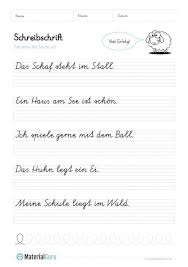 Name: Klasse: Datum:
Schreibschrift
Schreibe die Sätze ab.
Viel Erfolg!
Das Schaf steht im Stall.
Ein Haus am See ist schön.
Ich spiele gerne mit dem Ball.
Das Huhn legt ein Ei.
Meine Schule liegt im Wald.
MaterialGuru